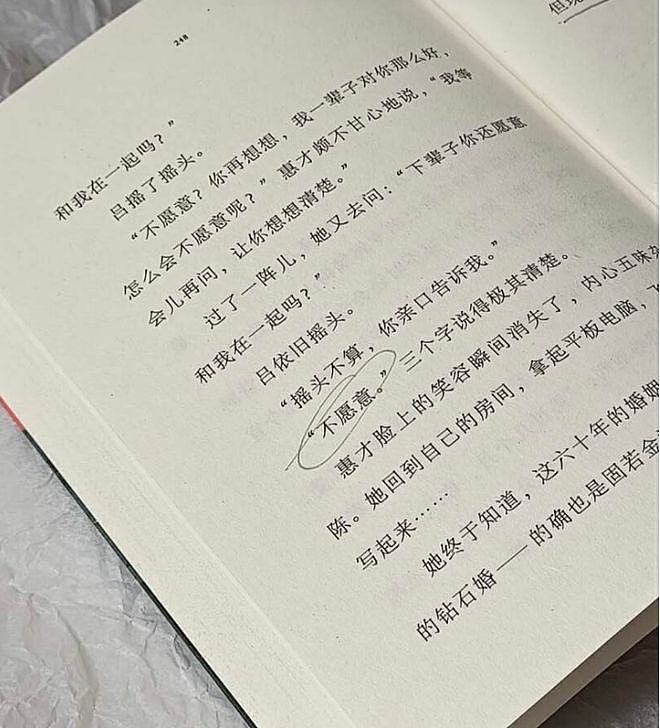 248
和我在一起吗？”
吕摇了摇头。
“不愿意？你再想想，我一辈子对你那么好，
怎么会不愿意呢？”惠才颇不甘心地说，“我等
会儿再问，让你想想清楚。”
过了一阵儿，她又去问：“下辈子你还愿意
和我在一起吗？”
吕依旧摇头。
“摇头不算，你亲口告诉我。”
“不愿意。”三个字说得极其清楚。
惠才脸上的笑容瞬间消失了，内心五味杂
陈。她回到自己的房间，拿起平板电脑，
写起来……
她终于知道，这六十年的婚姻
的钻石婚——的确也是固若金
但